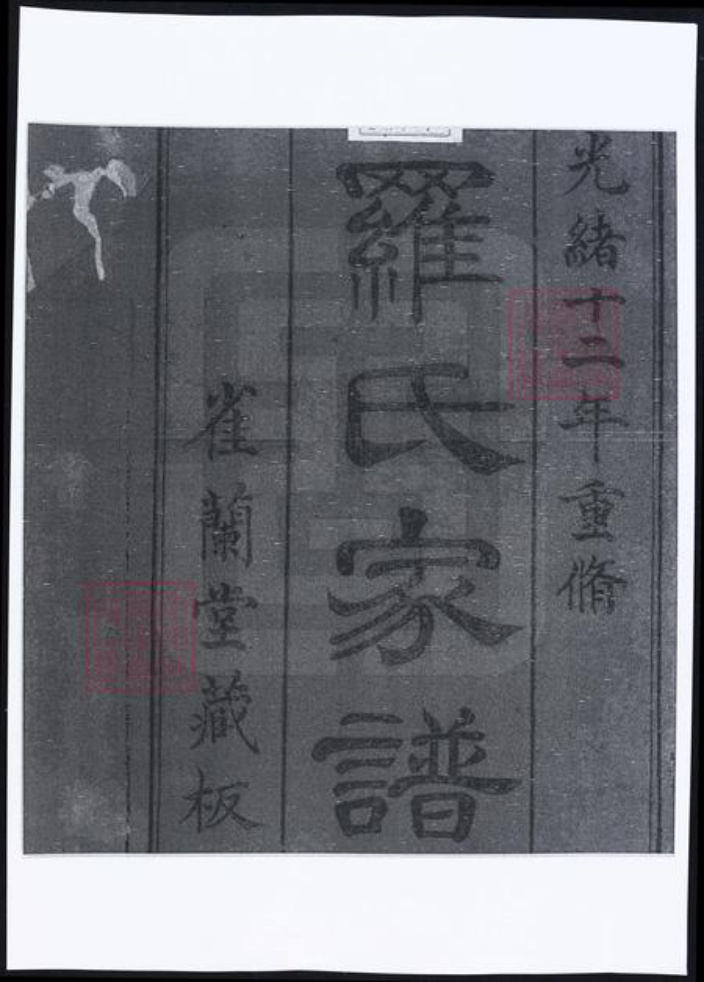 光緒十二年重脩
羅氏家譜
雀蘭堂藏板